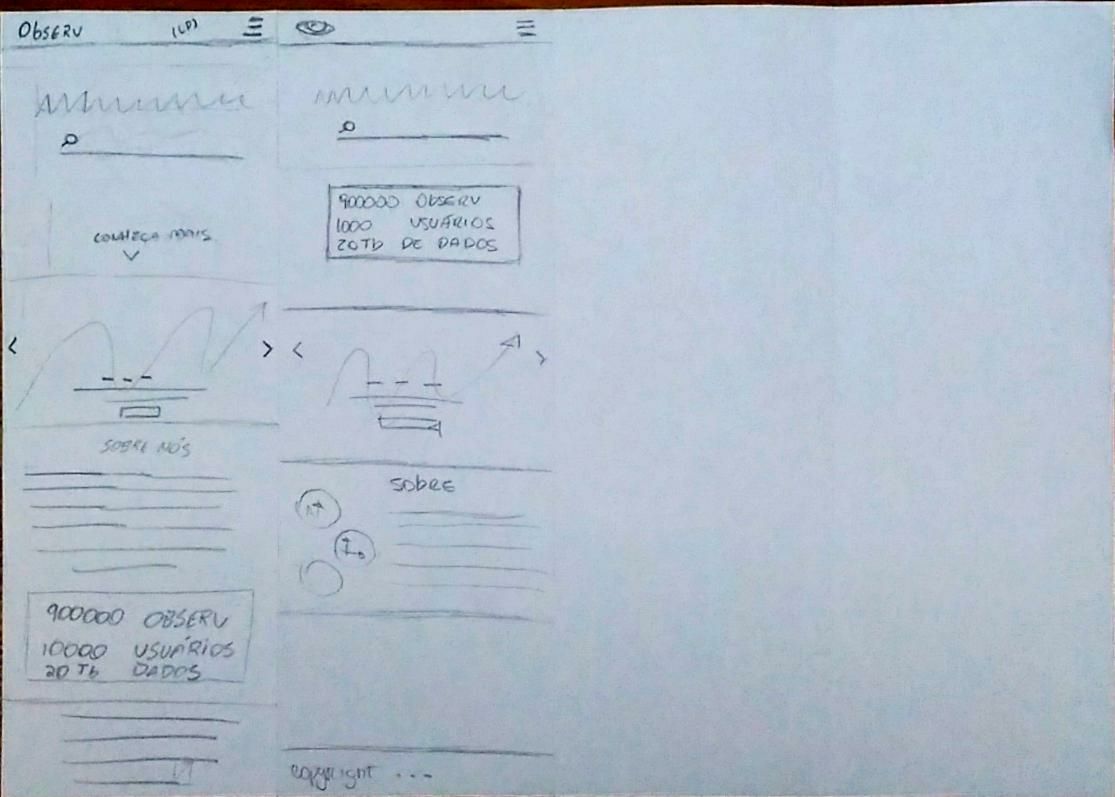 Observ (LP)
CONHEÇA MAIS
SOBRE NÓS
900000 OBSERV
10000 USUÁRIOS
20 Tb DADOS
900000 OBSERV
1000 USUÁRIOS
20Tb DE DADOS
SObRE
copyright ...